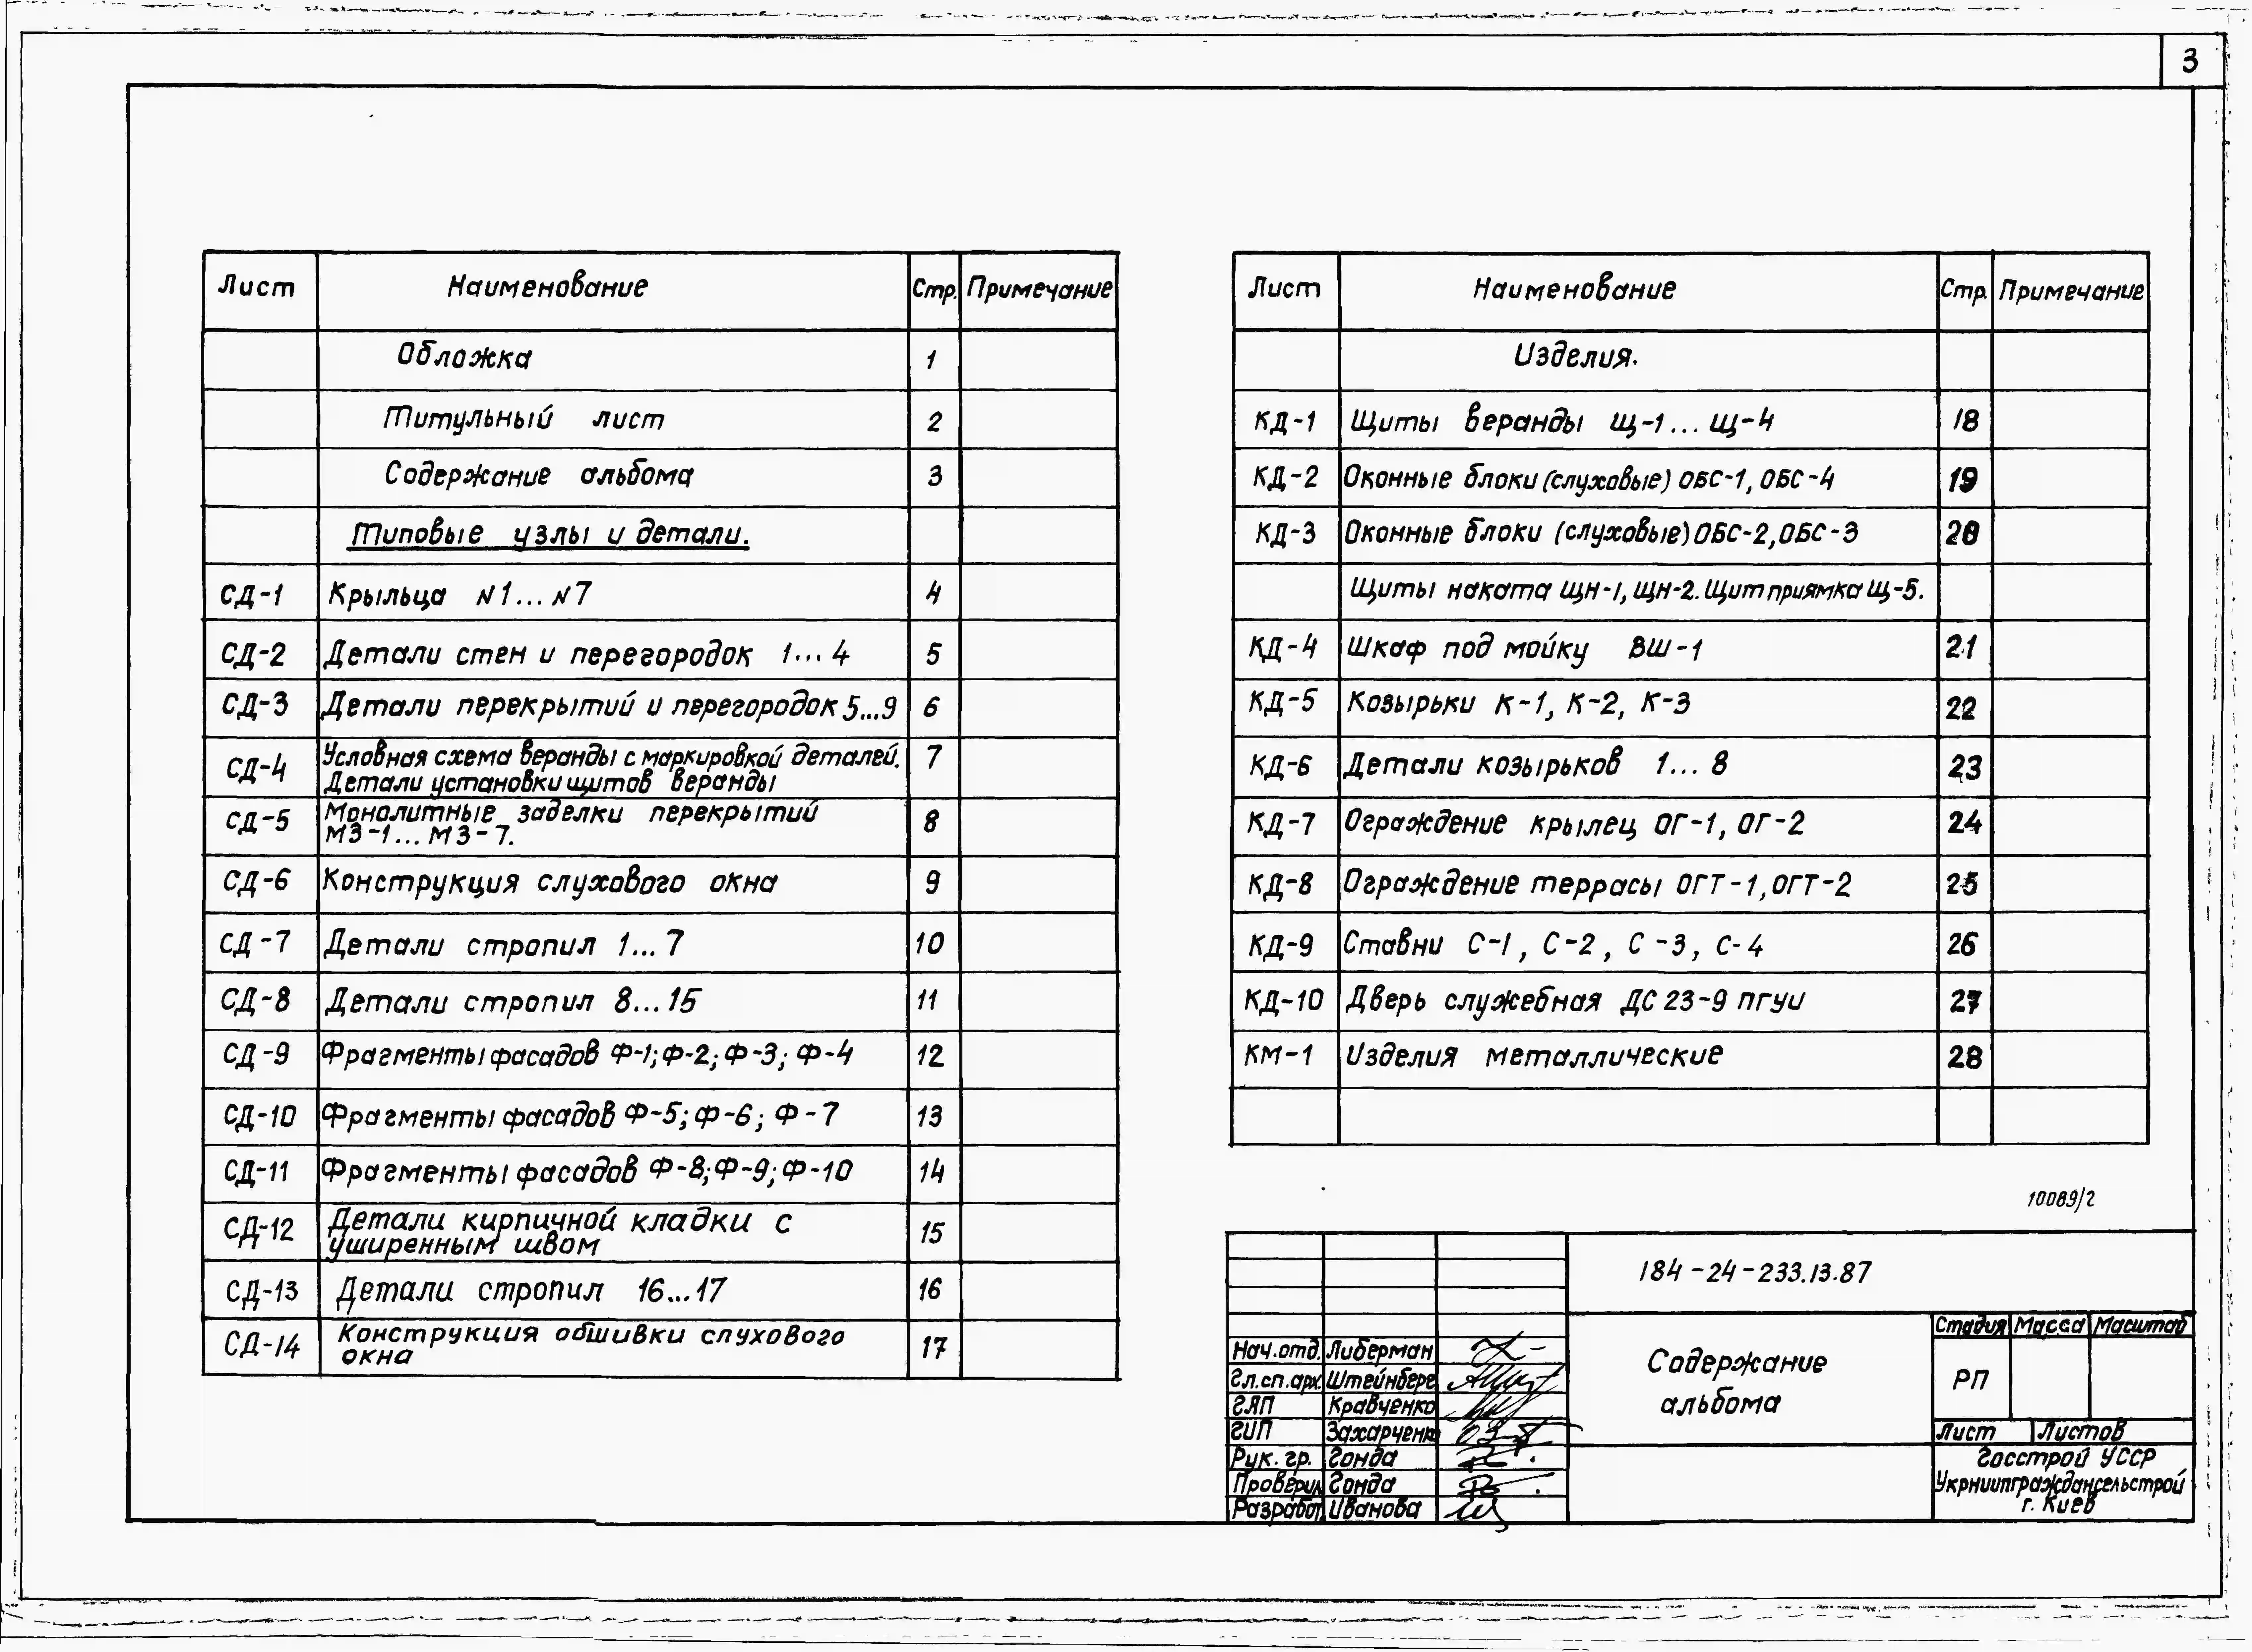 3
Лист Наименование Стр. Примечание
Обложка 1
Титульный лист 2
Содержание альбома 3
Типовые узлы и детали.
СД-1 Крыльца N1...N7 4
СД-2 Детали стен и перегородок 1...4 5
СД-3 Детали перекрытий и перегородок 5...9 6
СД-4 Условная схема веранды с маркировкой деталей. 7
Детали установки щитов веранды
СД-5 Монолитные заделки перекрытий 8
МЗ-1...МЗ-7.
СД-6 Конструкция слухового окна 9
СД-7 Детали стропил 1...7 10
СД-8 Детали стропил 8...15 11
СД-9 Фрагменты фасадов Ф-1; Ф-2; Ф-3; Ф-4 12
СД-10 Фрагменты фасадов Ф-5; Ф-6; Ф-7 13
СД-11 Фрагменты фасадов Ф-8; Ф-9; Ф-10 14
СД-12 Детали кирпичной кладки с 15
уширенным швом
СД-13 Детали стропил 16...17 16
СД-14 Конструкция обшивки слухового 17
окна
Лист Наименование Стр. Примечание
Изделия.
КД-1 Щиты веранды Щ-1...Щ-4 18
КД-2 Оконные блоки (слуховые) ОБС-1, ОБС-4 19
КД-3 Оконные блоки (слуховые) ОБС-2, ОБС-3 20
Щиты наката ЩН-1, ЩН-2. Щит приямка Щ-5.
КД-4 Шкаф под мойку ВШ-1 21
КД-5 Козырьки К-1, К-2, К-3 22
КД-6 Детали козырьков 1...8 23
КД-7 Ограждение крылец ОГ-1, ОГ-2 24
КД-8 Ограждение террасы ОГТ-1, ОГТ-2 25
КД-9 Ставни С-1, С-2, С-3, С-4 26
КД-10 Дверь служебная ДС 23-9 ПГУИ 27
КМ-1 Изделия металлические 28
10089/2
184-24-233.13.87
Содержание
альбома
Стадия Масса Масштаб
РП
Лист Листов
Госстрой УССР
Укрниипграждансельстрой
г. Киев
Нач.отд. Либерман
Гл.сп.арх. Штейнберг
ГАП Кравченко
ГИП Захарченко
Рук. гр. Гонда
Проверил Гонда
Разработ Иванова